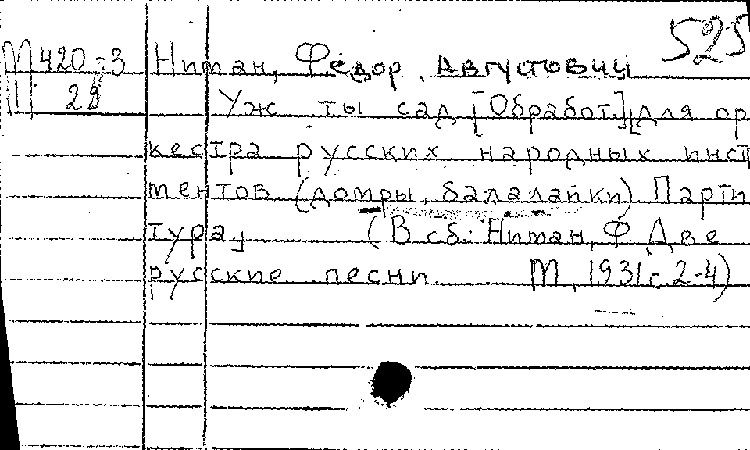 525
М 420-3 Ниман, Фёдор Августович
28 Уж ты сад [Обработ.] для ор
кестра русских народных инст
ментов (домры, балалайки) Парти
тура, (В сб: Ниман, Ф Две
русские песни М, 1931г. 2-4)